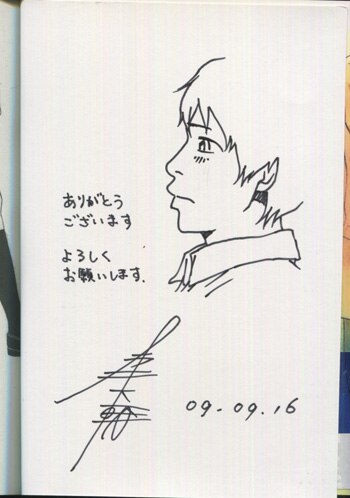 ありがとう
ございます
よろしく
お願いします.
09.09.16